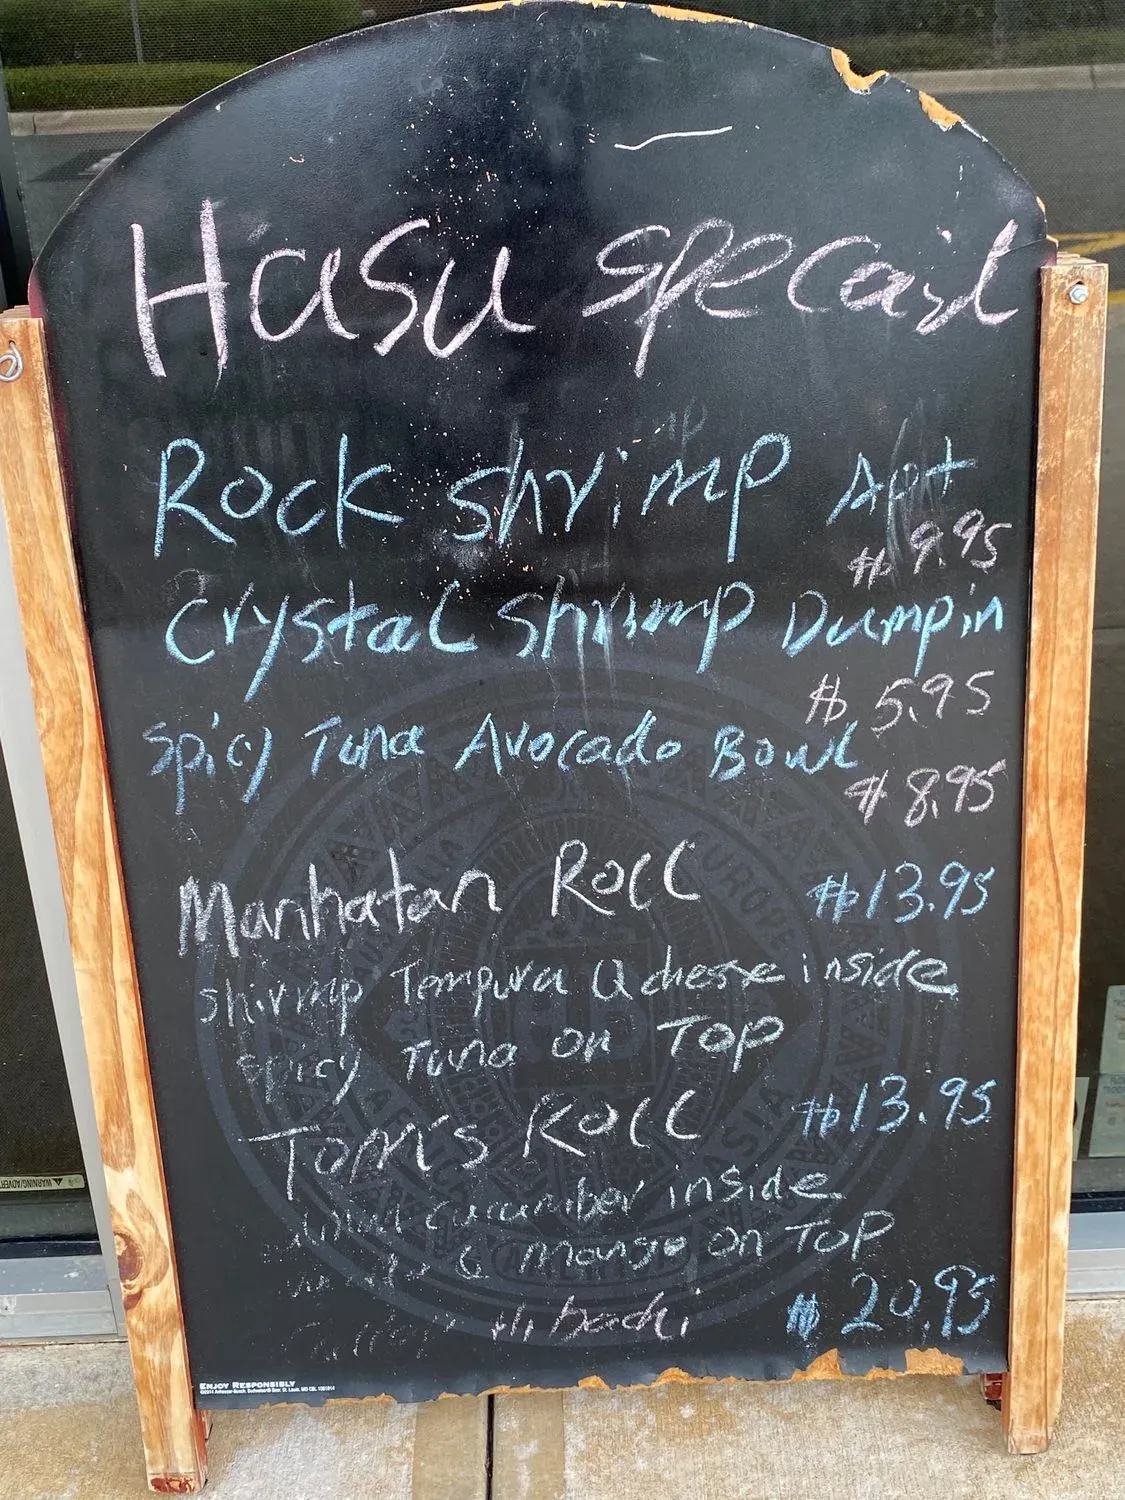 Hasu specail
Rock shrimp Apt
$9.95
Crystal shrimp Dumpin
$5.95
Spicy Tuna Avocado Bowl
$8.95
Manhatan Roll $13.95
shirmp Tempura & chesse inside
spicy Tuna on Top
Tom's Roll $13.95
cucumber inside
& mango on Top
Hibachi $20.95
ENJOY RESPONSIBLY